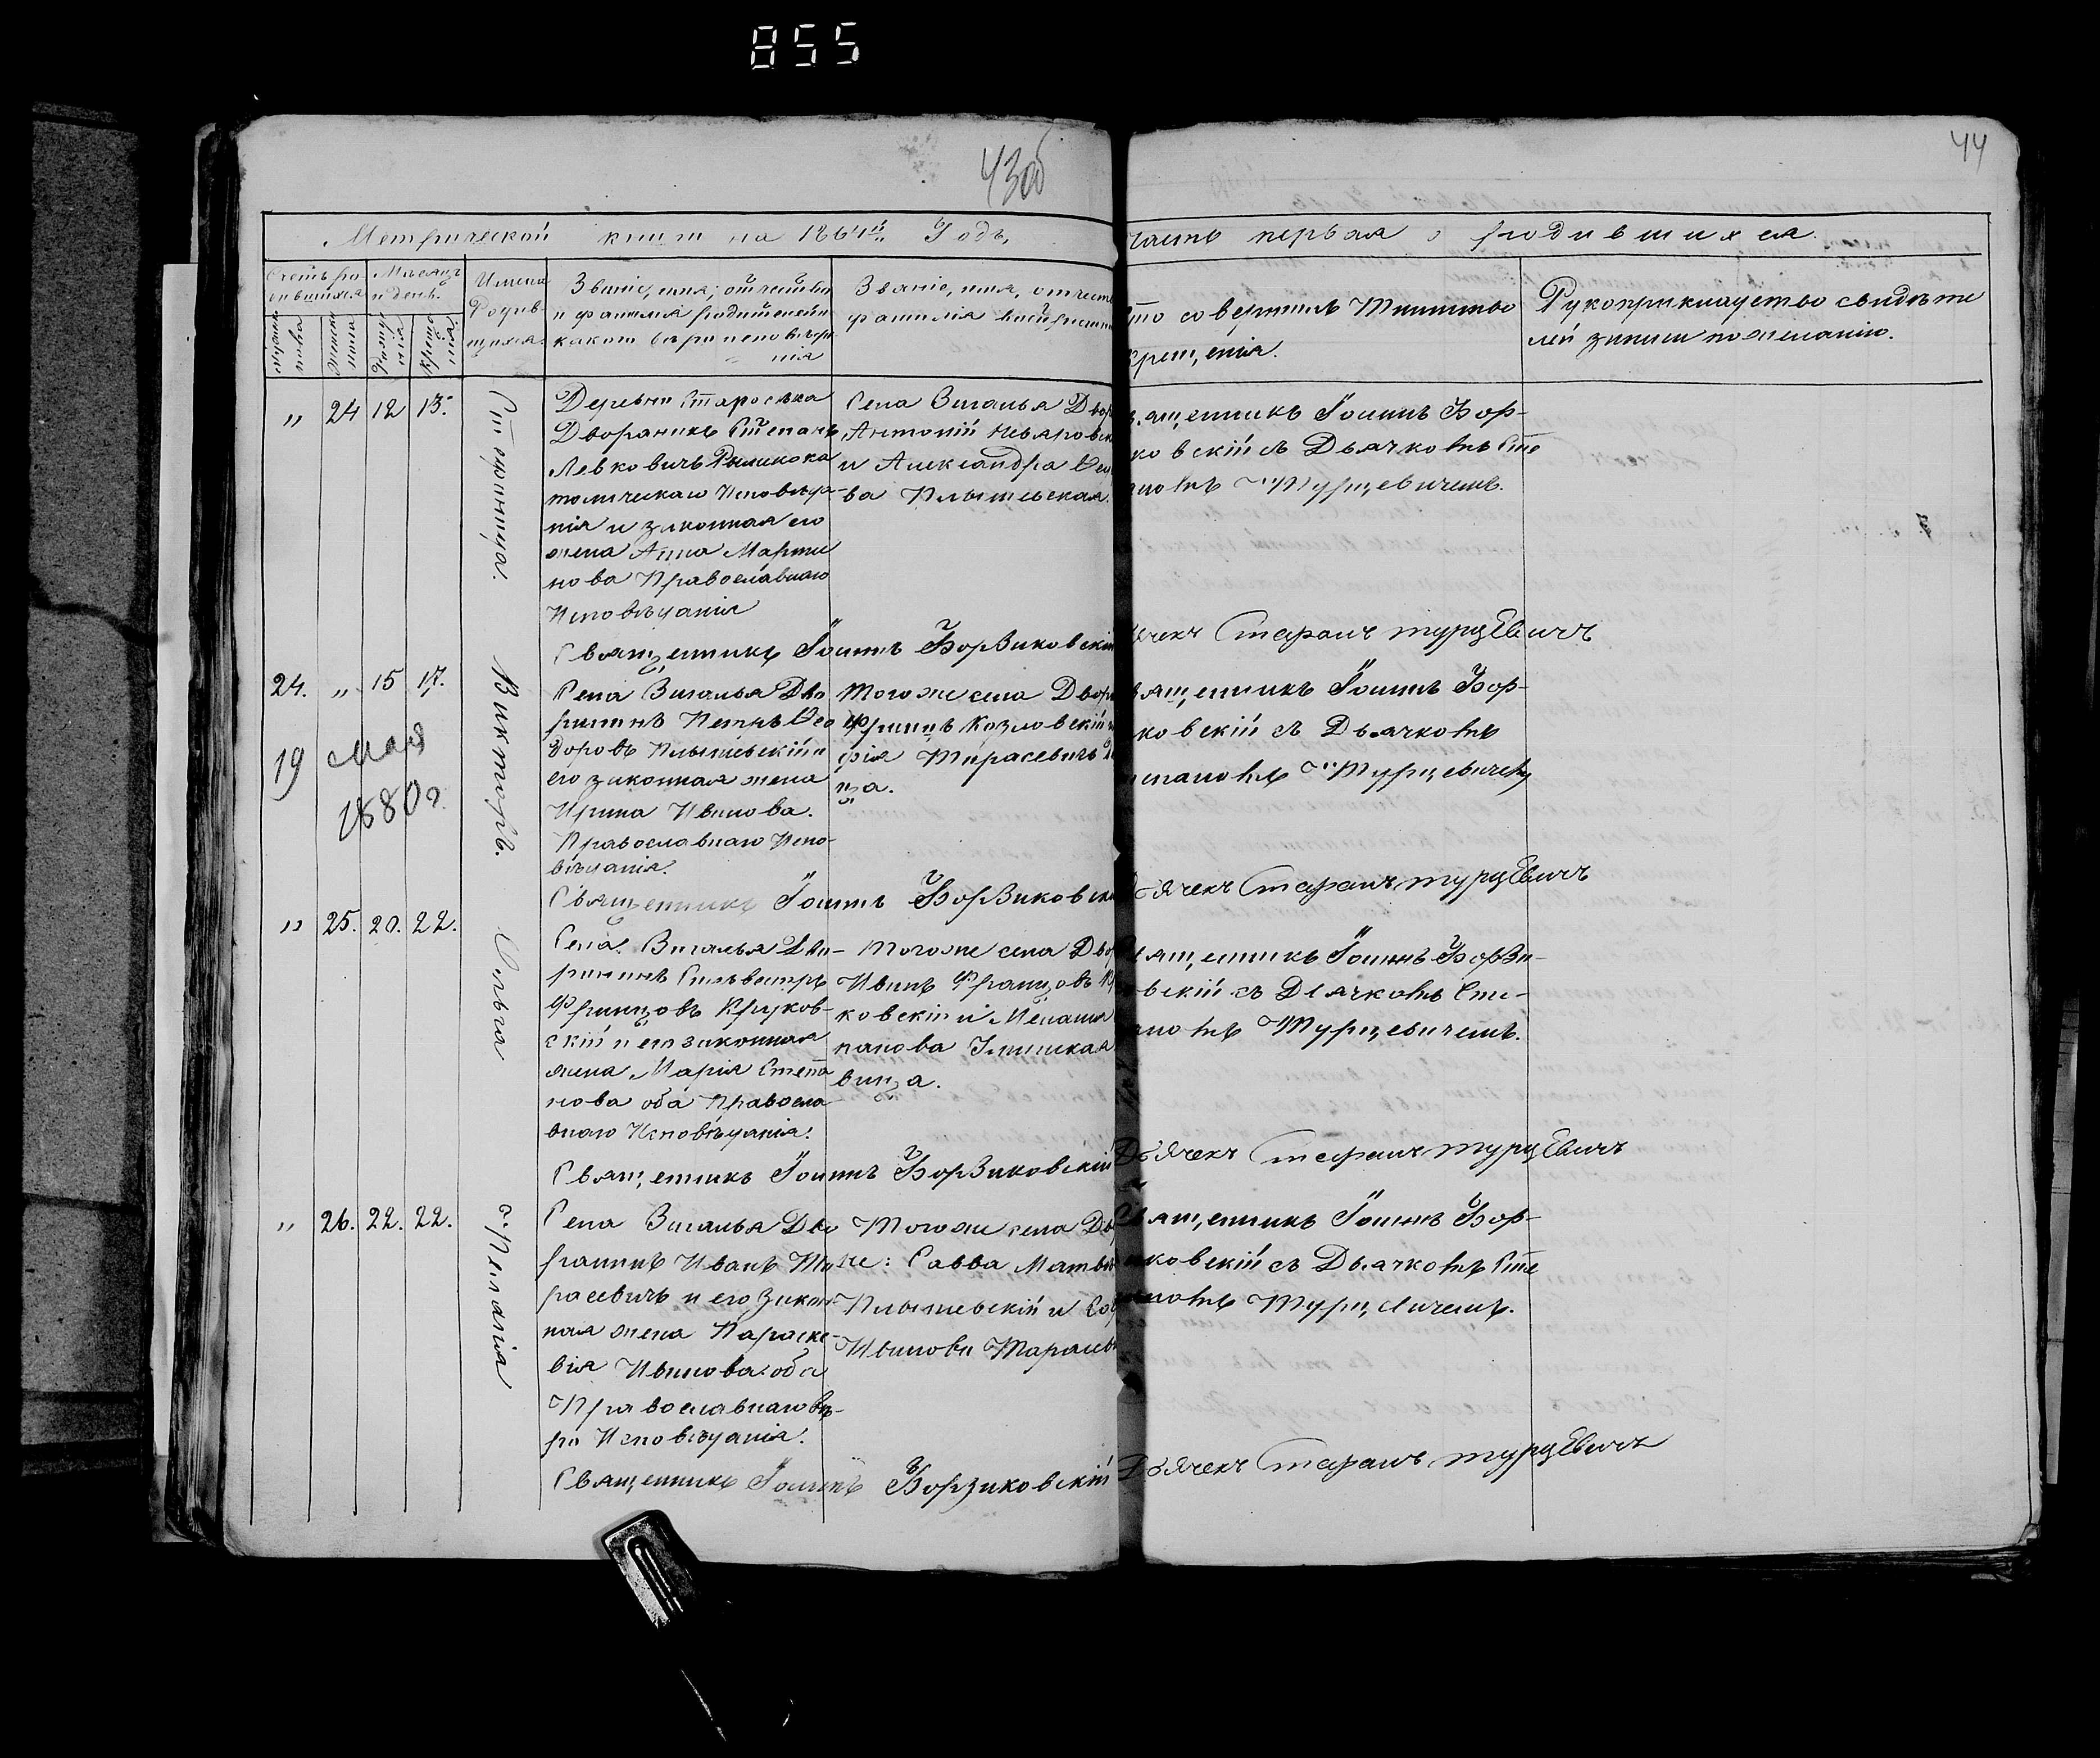 855
43об
44
Метрической книги на 1864й Годъ,
часть первая о родившихся
Счетъ ро-
дившихся
Мѣсяцъ
и день.
Имена
Родив-
шихся.
Званіе, имя, отчество
и фамилія родителей и
какого вѣроисповѣда
нія
Званіе, имя, отчест
фамилія
то совершилъ Таинство
крещенія.
Рукоприкладство свидѣте
лей записи по желанію.
„ 24 12 13.
Деревни Староська
Дворянинъ Степанъ
Левковичъ
Исповѣда-
нія и законная его
жена Анна Марти
нова Православнаго
Исповѣданія
Села Вигалья Двор
Антоній
и Александра
ва Плышевская.
ященникъ Іоаннъ Бор-
ковскій съ Дьячкомъ Сте
номъ Турцевичемъ.
Священникъ Іоаннъ Борзиковскій
ячекъ Стефанъ турцЕвичъ
24. „ 15 17.
19 мая
1880 г.
Викторъ.
Села Вигалья Дво
рянинъ Петръ Ѳео
доровъ Плышевскій и
его законная жена
Ирина Иванова.
Православнаго Испо-
вѣданія.
Того же села Двор
Францъ Козловскій
фія Тарасевичъ
ца.
ященникъ Іоаннъ Бор-
ковскій съ Дьячкомъ
паномъ Турцевичемъ
Священникъ Іоаннъ Борзиковск
Дьячекъ Стефанъ турцЕвичъ
„ 25. 20. 22.
Ольга
Села Вигалья Дво-
рянинъ Сильвестръ
Францовъ Круков-
скій и его законная
жена Марія Степа
нова оба Правосла
внаго Исповѣданія.
Того же села Двор
Иванъ Францовъ Кр
ковскій и Меланія
панова
вица.
ященникъ Іоаннъ Борзи-
вскій съ Дьячкомъ Сте-
номъ Турцевичемъ.
Священникъ Іоаннъ Борзиковскій
Дьячекъ Стефанъ турцЕвичъ
„ 26. 22. 22.
Села Вигалья Дво
рянинъ Иванъ Та
расевичъ и его закон
ная жена Параске-
вія Иванова оба
Православнаго Вѣ-
ро Исповѣданія.
Того же села Дв
не: Савва Матвѣ
Плышевскій и Соф
Иванова Тарасев
Священникъ Іоаннъ Бор-
иковскій съ Дьячкомъ Сте
паномъ Турцевичемъ.
Священникъ Іоаннъ Борзиковскій
Дьячекъ Стефанъ турцЕвичъ